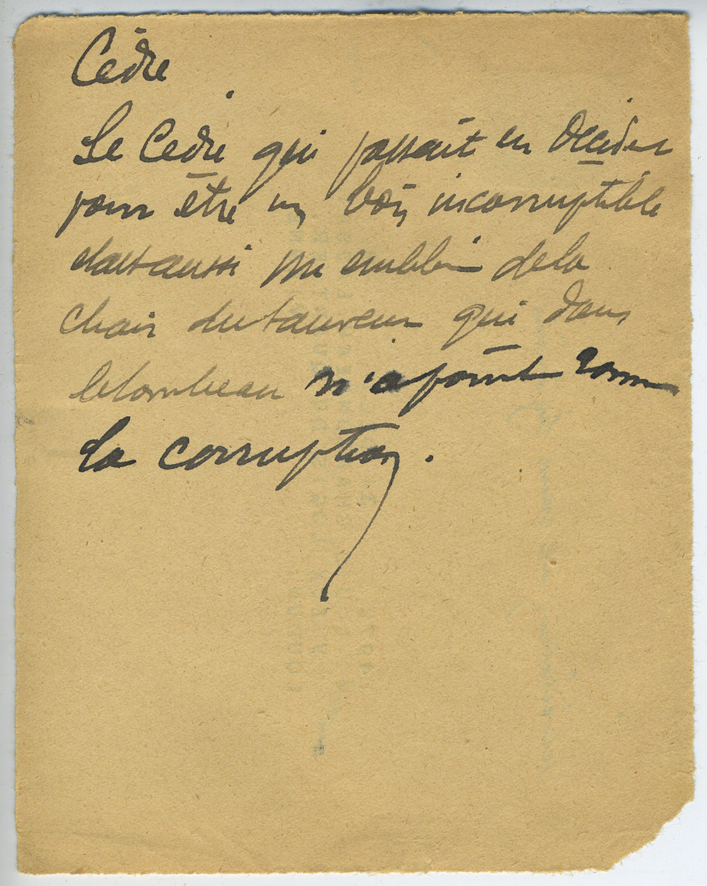 Cèdre
Le Cèdre qui passait en Occident
pour être un bois incorruptible
était aussi un emblème de la
chair du sauveur qui dans
le tombeau n'a point connu
la corruption.